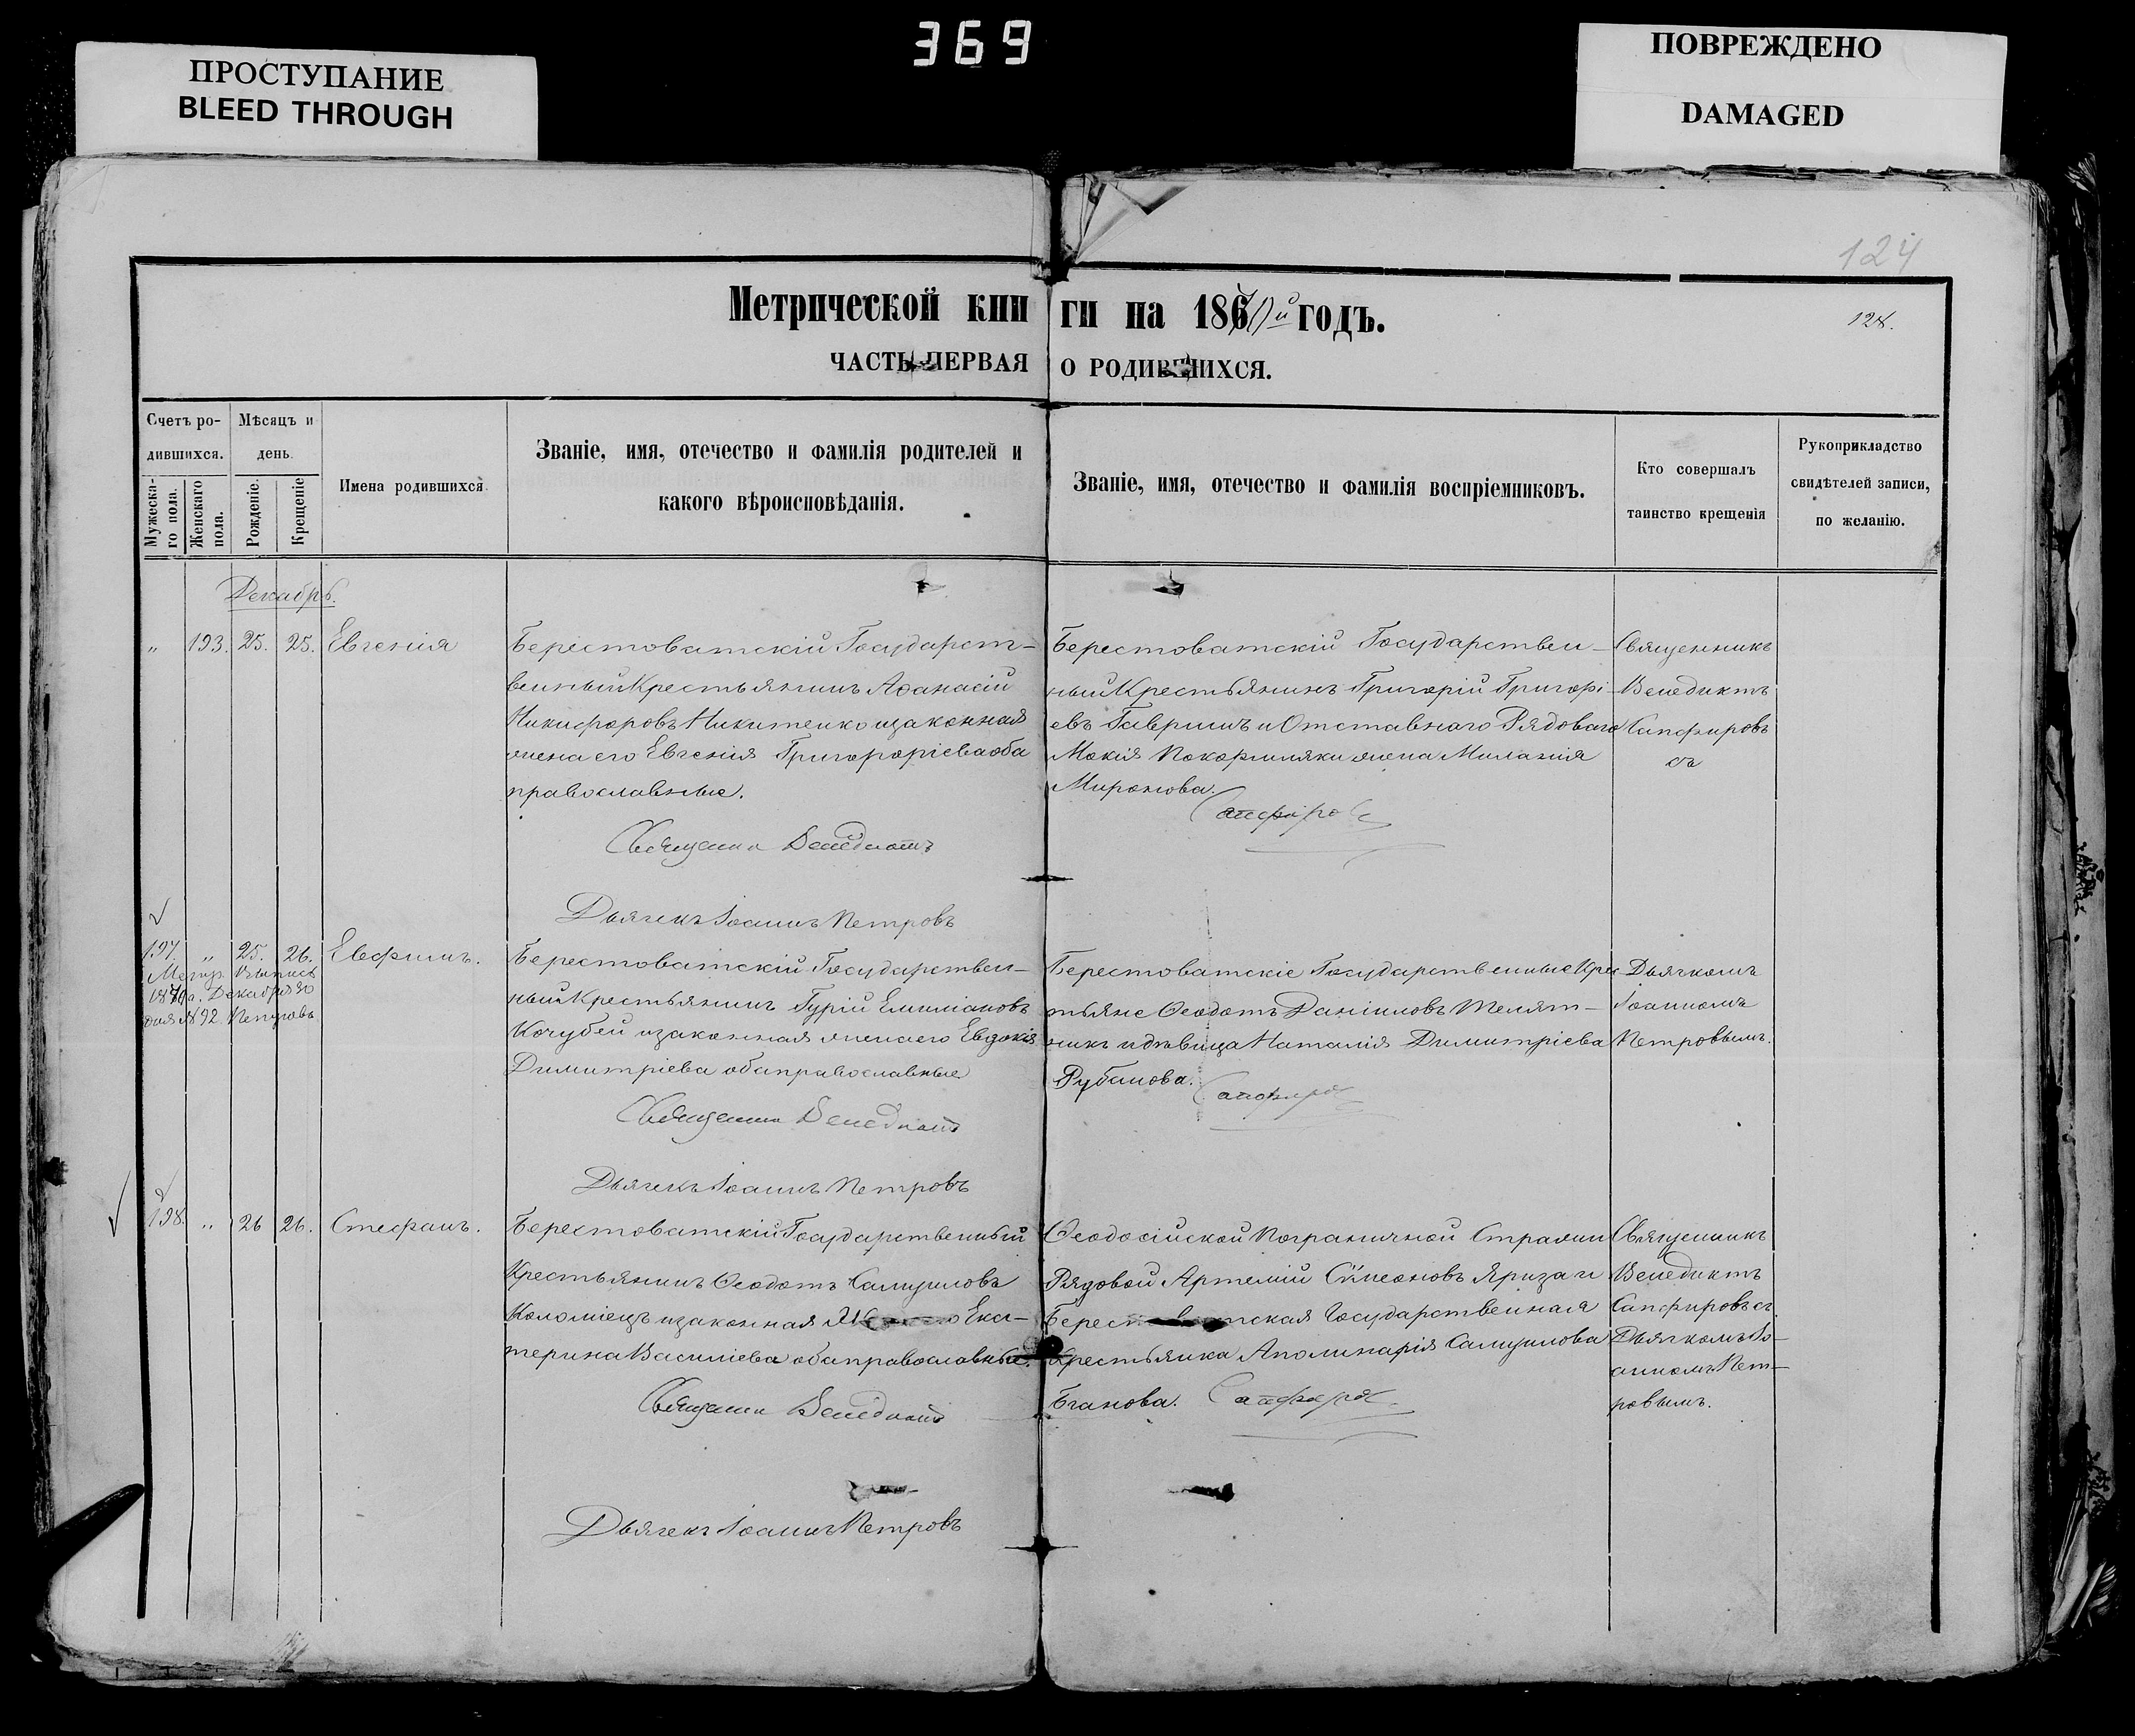 369
ПРОСТУПАНИЕ
BLEED THROUGH
ПОВРЕЖДЕНО
DAMAGED
124
Метрической книги на 1870й годъ.
128.
ЧАСТЬ ПЕРВАЯ О РОДИВШИХСЯ.
Счетъ родившихся.
Мужескаго пола.
Женскаго пола.
Мѣсяцъ и день.
Рожденіе.
Крещеніе
Имена родившихся.
Званіе, имя, отечество и фамилія родителей и
какого вѣроисповѣданія.
Званіе, имя, отечество и фамилія воспріемниковъ.
Кто совершалъ
таинство крещенія
Рукоприкладство
свидѣтелей записи,
по желанію.
Декабрь.
„ 193. 25. 25. Евгенія
Берестоватскій Государст-
венный Крестьянинъ Аѳанасій
Никифоровъ Никитенко и законная
жена его Евгенія Григорьева оба
православные.
Берестоватскій Государствен-
ный Крестьянинъ Григорій Григорі-
евъ Гавришъ и Отставнаго Рядоваго
Мокія жена Миланія
Миронова.
Священникъ
Венедиктъ
Сапфировъ
съ
Священникъ Венедиктъ Сапфировъ
Дьячекъ Іоаннъ Петровъ
197. „ 25. 26. Евфимъ.
Метр. Выпись
1870 Декабря 30
дня №92. Петровъ
Берестоватскій Государствен-
ный Крестьянинъ Гурій Емиліановъ
Кочубей и законная жена его Евдокія
Димитріева оба православные
Берестоватскіе Государственные Крес
тьяне Ѳеодотъ Даніиловъ Телят-
никъ и дѣвица Наталія Димитріева
Рубанова.
Дьячкомъ
Іоанномъ
Петровымъ.
Священникъ Венедиктъ Сапфировъ
Дьячекъ Іоаннъ Петровъ
198. „ 26 26. Стефанъ.
Берестоватскій Государственный
Крестьянинъ Ѳеодотъ Самуиловъ
Коломіецъ и законная Ека-
терина Василіева оба православные.
Ѳеодосійской Пограничной Стражи
Рядовой Артемій Симеоновъ и
Берестоватская Государственная
Крестьянка Аполинарія Самуилова
Бганова.
Священникъ
Венедиктъ
Сапфировъ съ
Дьячкомъ Іо-
анномъ Пет-
ровымъ.
Священникъ Венедиктъ Сапфировъ
Дьячекъ Іоаннъ Петровъ